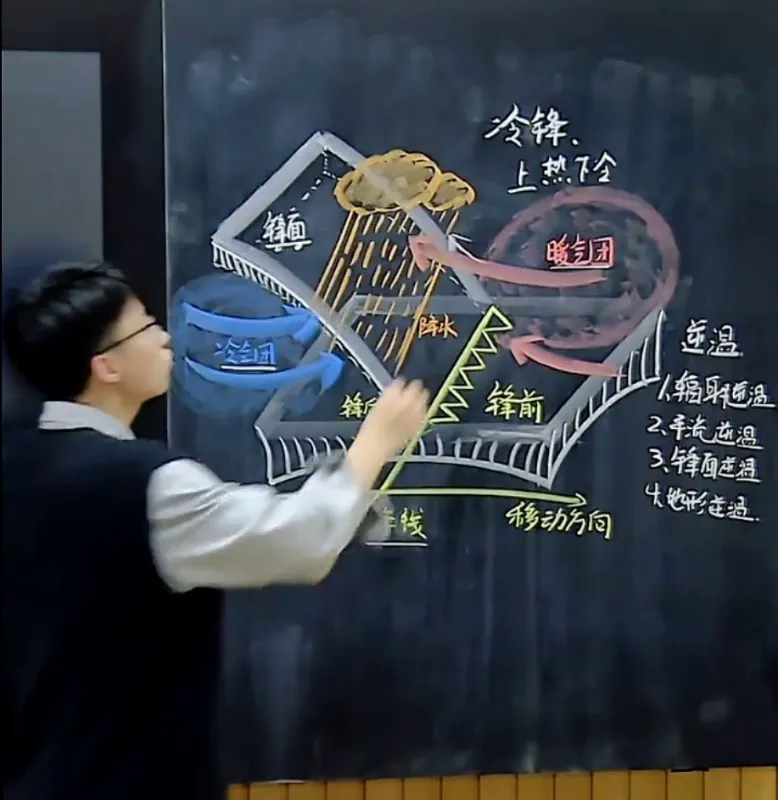 冷锋、
上热下冷
锋面
暖气团
冷气团
降水
逆温
1.辐射逆温
2.平流逆温
3.锋面逆温
4.地形逆温
锋
锋前
线
移动方向